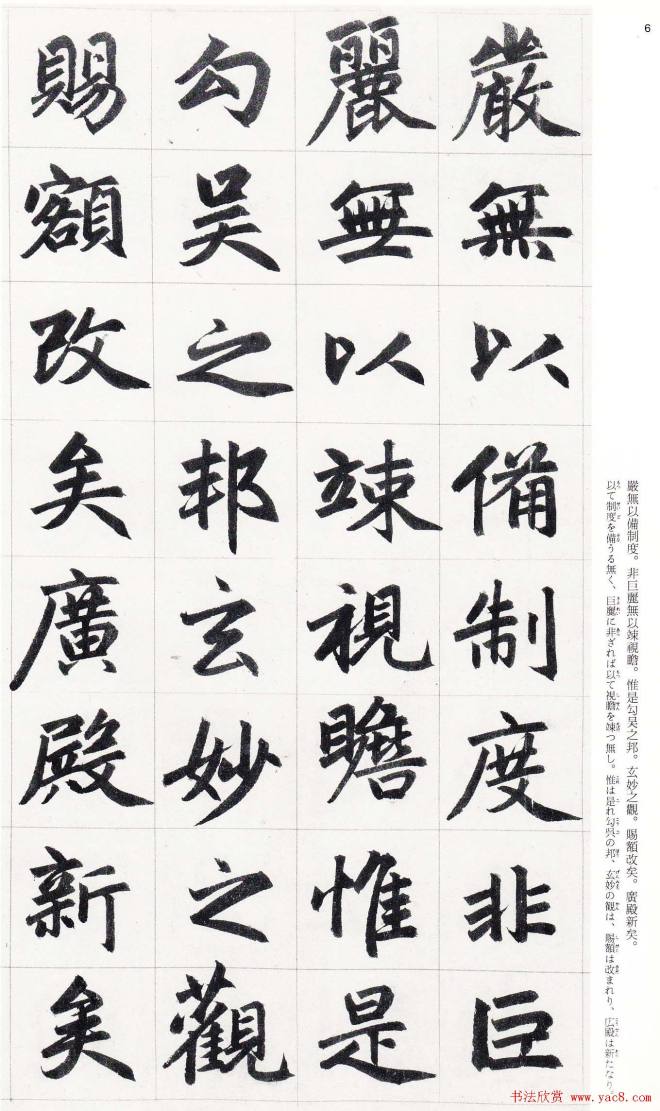 6
嚴無以備制度。非巨麗無以竦視瞻。惟是勾吴之邦。玄妙之觀。賜額改矣。廣殿新矣。
以て制度を備うる無く、巨麗に非ざれば以て視瞻を竦つ無し。惟は是れ勾呉の邦、玄妙の観は、賜額は改まれり、広殿は新たなり。
嚴無以備制度非巨
麗無以竦視瞻惟是
勾吴之邦玄妙之觀
賜額改矣廣殿新矣
书法欣赏 www.yac8.com